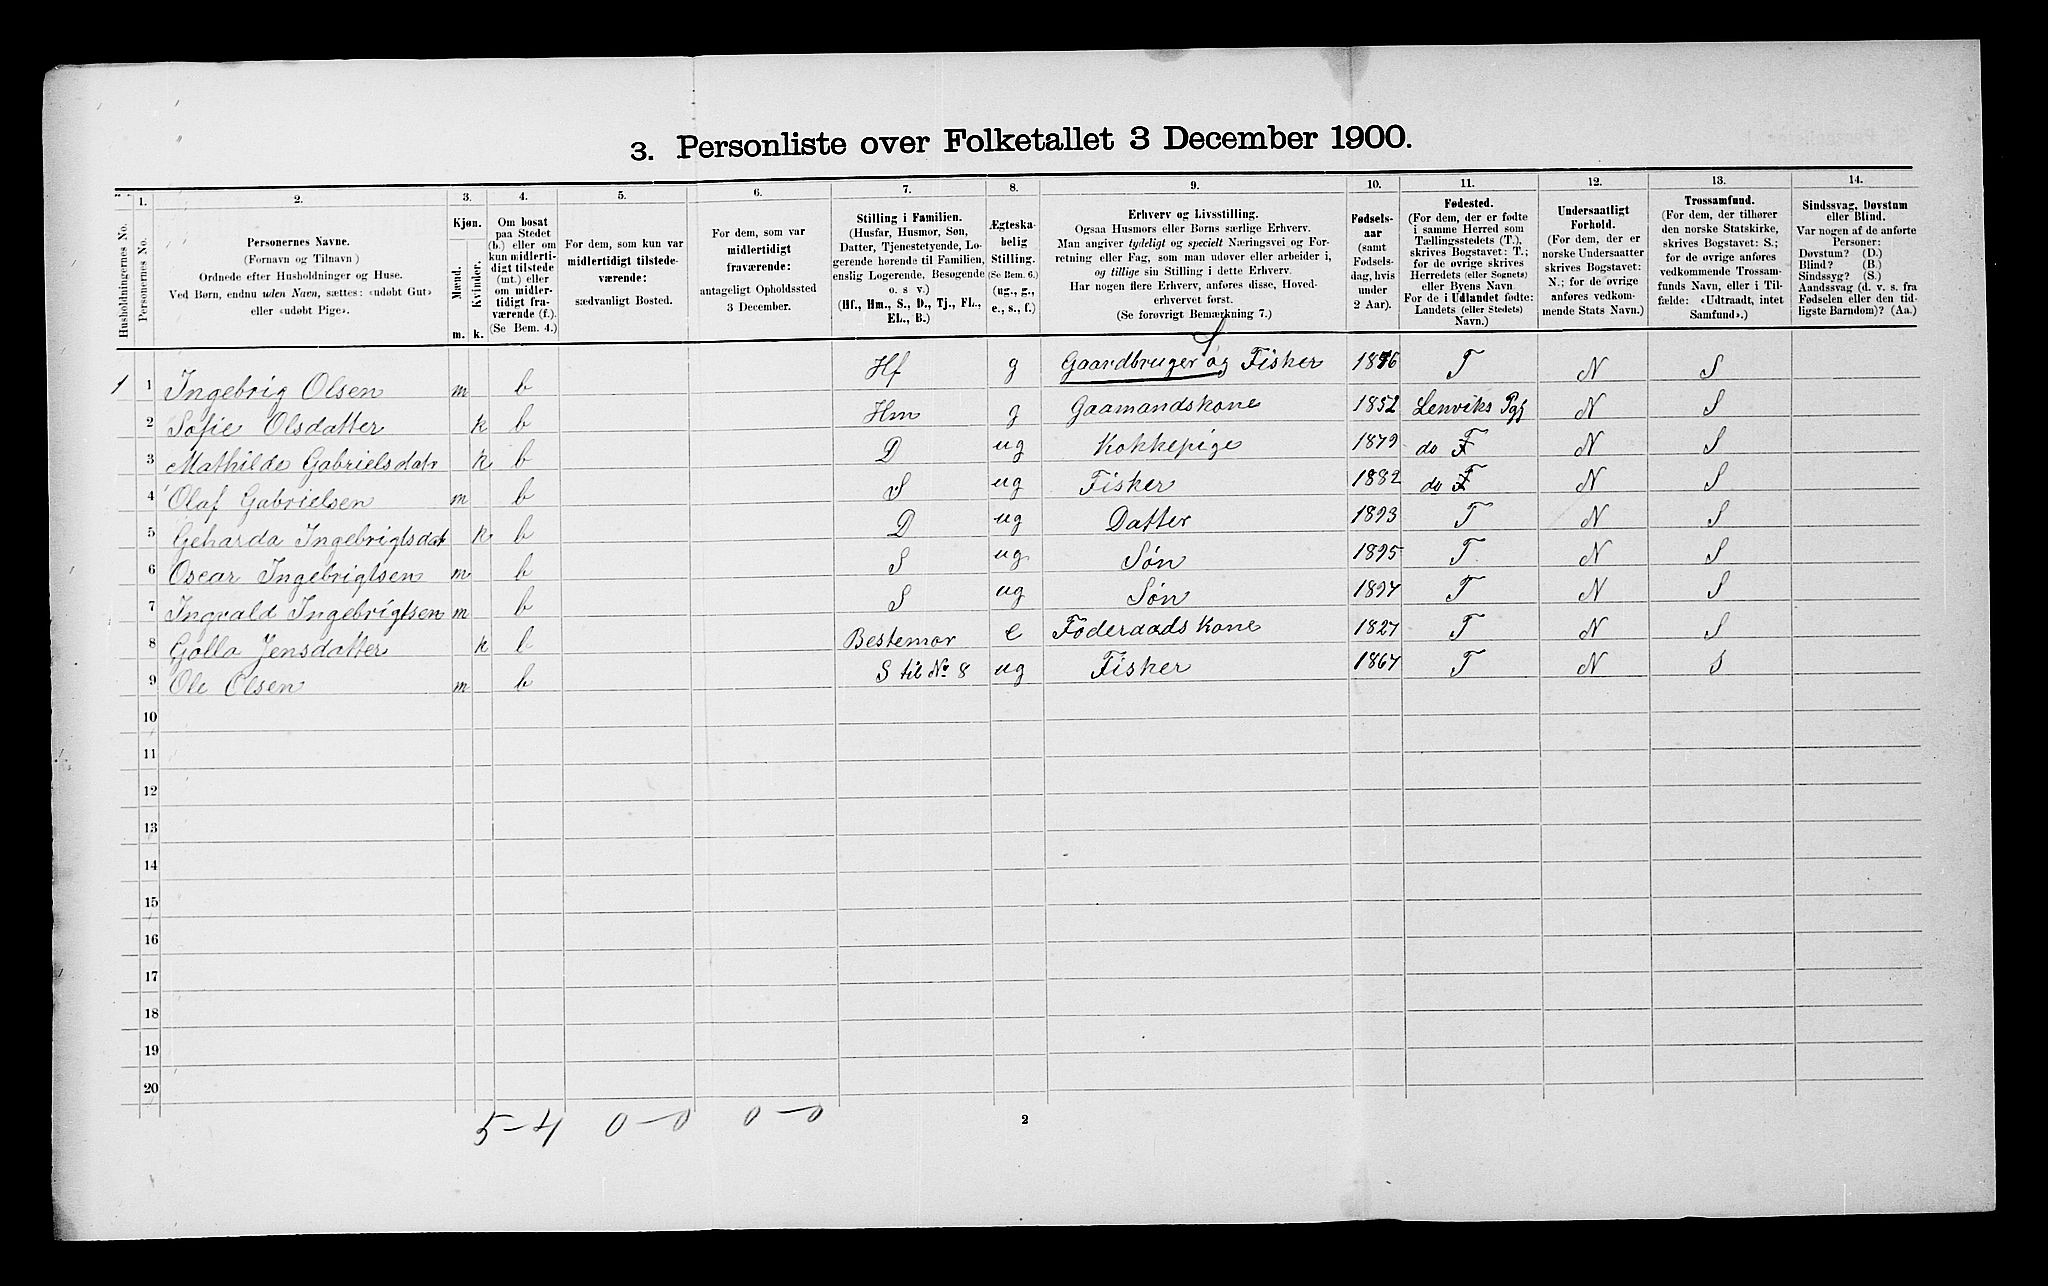 3. Personliste over Folketallet 3 December 1900.
Husholdningernes No.
1. Personernes No.
2. Personernes Navne. (Fornavn og Tilnavn) Ordnede efter Husholdninger og Huse. Ved Børn, endnu uden Navn, sættes: «udøbt Gut» eller «udøbt Pige».
3. Kjøn. Mænd. m. Kvinder. k.
4. Om bosat paa Stedet (b.) eller om kun midlertidigt tilstede (mt.) eller om midlertidigt fraværende (f.). (Se Bem. 4.)
5. For dem, som kun var midlertidigt tilstedeværende: sædvanligt Bosted.
6. For dem, som var midlertidigt fraværende: antageligt Opholdssted 3 December.
7. Stilling i Familien. (Husfar, Husmor, Søn, Datter, Tjenestetyende, Logerende hørende til Familien, enslig Logerende, Besøgende o. s v.) (Hf., Hm., S., D., Tj., FL., EL., B.)
8. Ægteskabelig Stilling. (Se Bem. 6.) (ug., g., e., s., f.)
9. Erhverv og Livsstilling. Ogsaa Husmors eller Børns særlige Erhverv. Man angiver tydeligt og specielt Næringsvei og Forretning eller Fag, som man udøver eller arbeider i, og tillige sin Stilling i dette Erhverv. Har nogen flere Erhverv, anføres disse, Hovederhvervet først. (Se forøvrigt Bemærkning 7.)
10. Fødselsaar (samt Fødselsdag, hvis under 2 Aar).
11. Fødested. (For dem, der er fødte i samme Herred som Tællingsstedets (T.), skrives Bogstavet: T.; for de øvrige skrives Herredets (eller Sognets) eller Byens Navn. For de i Udlandet fødte: Landets (eller Stedets) Navn.)
12. Undersaatligt Forhold. (For dem, der er norske Undersaatter skrives Bogstavet: N.; for de øvrige anføres vedkommende Stats Navn.)
13. Trossamfund. (For dem, der tilhører den norske Statskirke, skrives Bogstavet: S.; for de øvrige anføres vedkommende Trossamfunds Navn, eller i Tilfælde: «Udtraadt, intet Samfund».)
14. Sindssvag, Døvstum eller Blind. Var nogen af de anførte Personer: Døvstum? (D.) Blind? (B.) Sindssyg? (S.) Aandssvag (d. v. s. fra Fødselen eller den tidligste Barndom)? (Aa.)
1 1 Ingebrig Olsen m b Hf g Gaardbruger S og Fisker 1856 T N S
2 Sofie Olsdatter k b Hm g Gaamandskone 1852 Lenviks Pgj N S
3 Mathilde Gabrielsdatr k b D ug Kokkepige 1879 do T N S
4 Olaf Gabrielsen m b S ug Fisker 1882 do T N S
5 Geharda Ingebrigtsdat k b D ug Datter 1893 T N S
6 Oscar Ingebrigtsen m b S ug Søn 1895 T N S
7 Ingvald Ingebrigtsen m b S ug Søn 1897 T N S
8 Golla Jensdatter k b Bestemor e Føderaads Kone 1827 T N S
9 Ole Olsen m b S til No 8 ug Fisker 1867 T N S
10
11
12
13
14
15
16
17
18
19
20
5-4 0-0 0-0
2